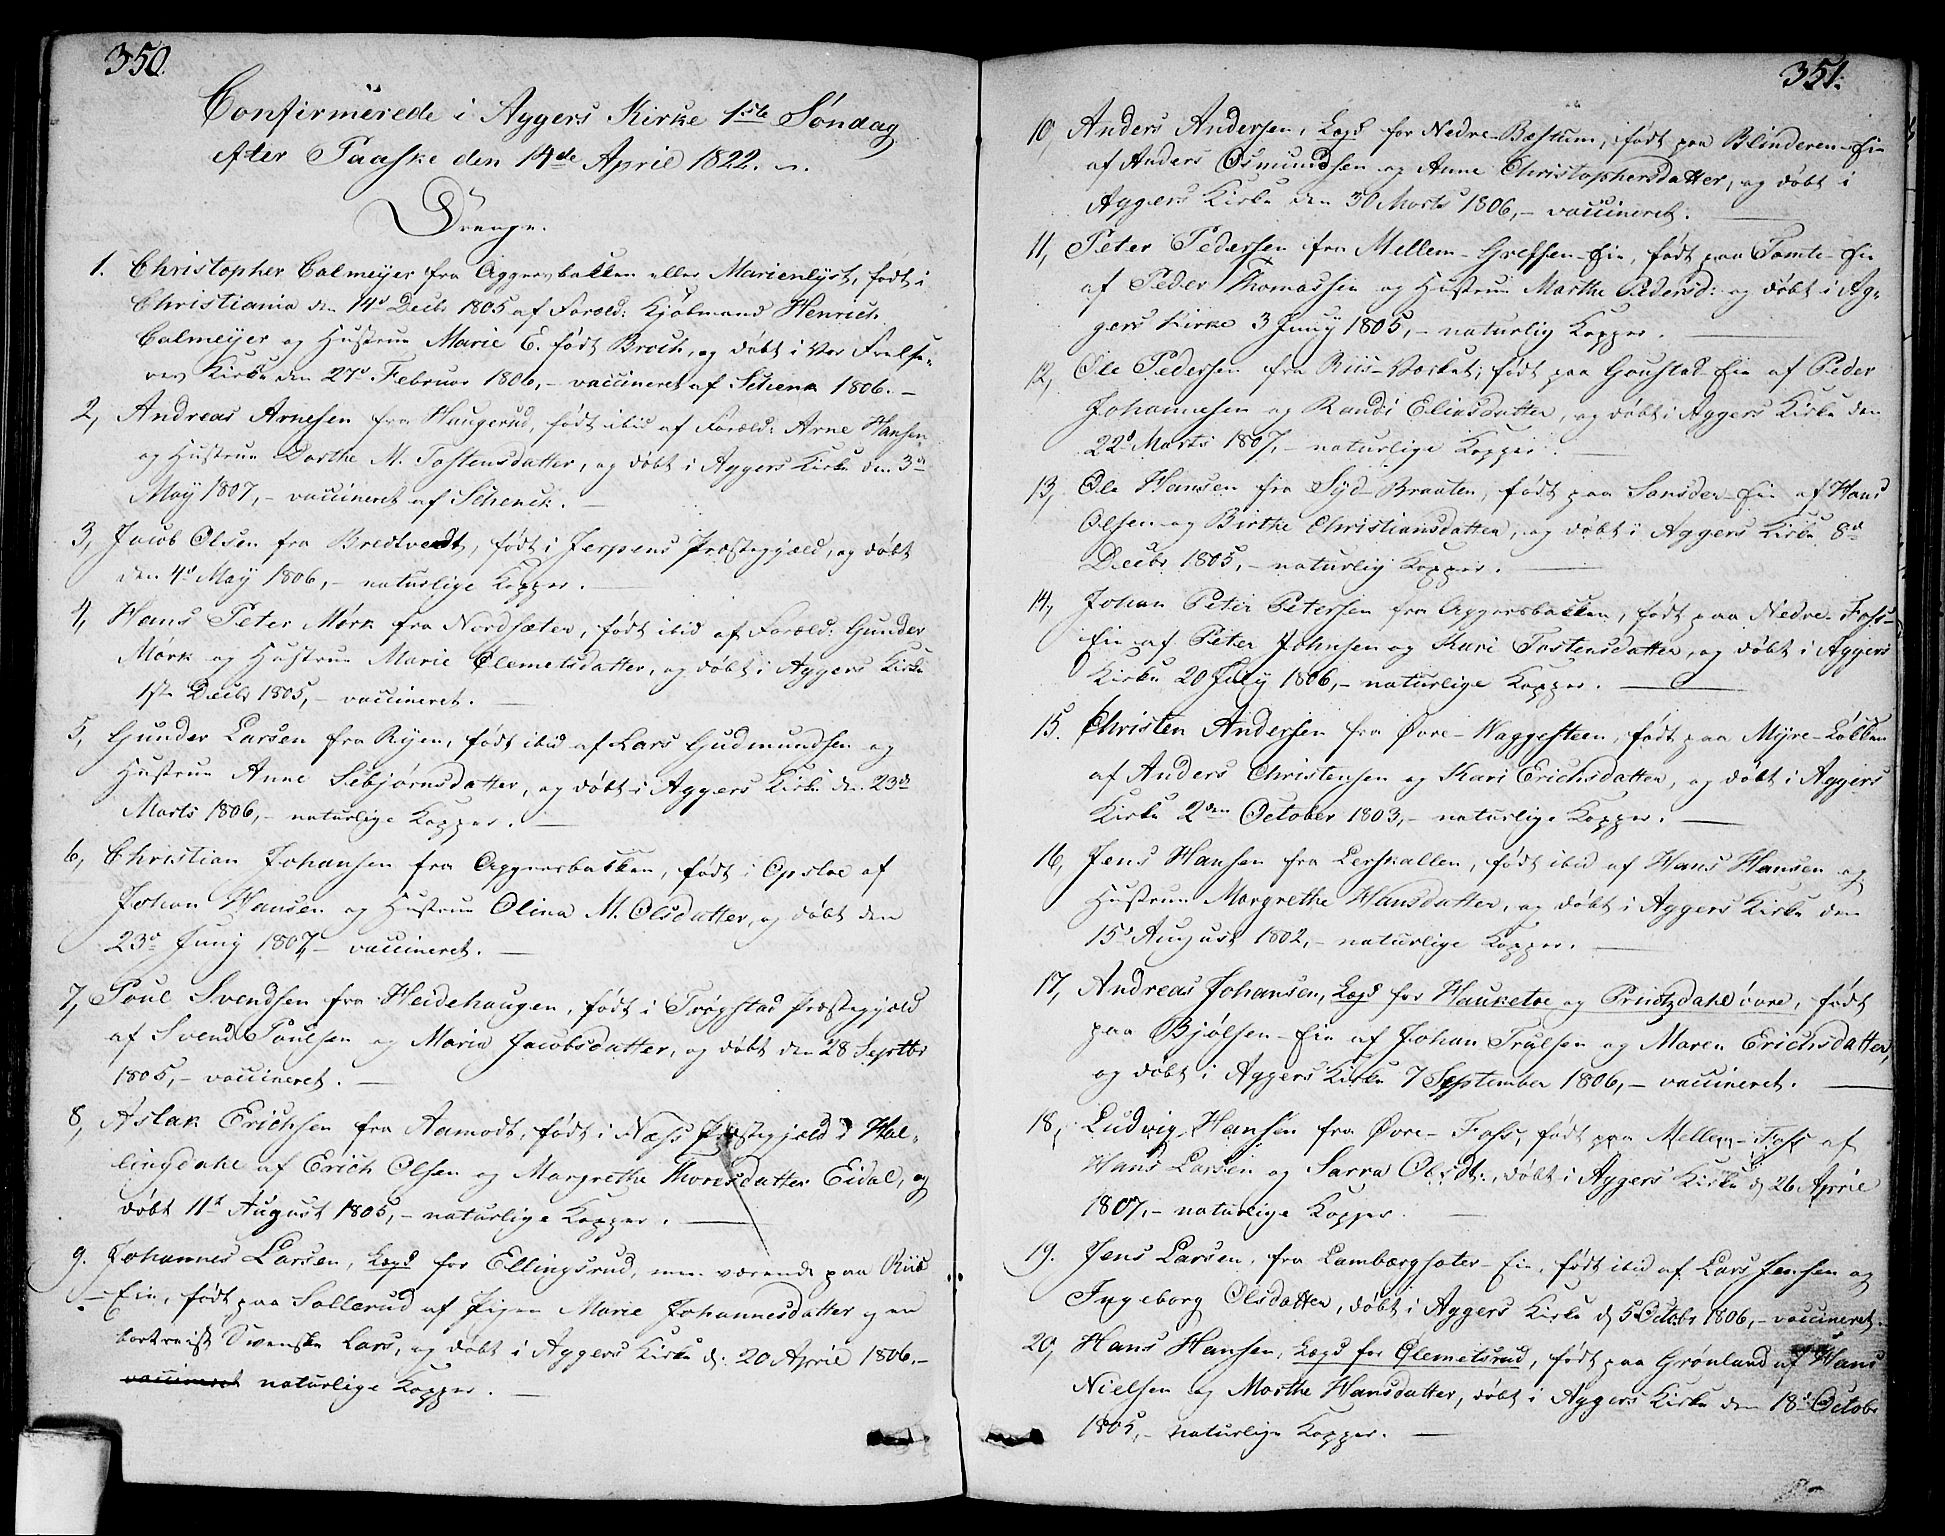 350.
Confirmerede i Aggers Kirke 1ste Søndag
efter Paaske den 14de April 1822.
Drenge.
1. Christopher Calmeyer fra Aggersbakken eller Marienlyst, født i
Christiania den 14d Decbr 1805 af Foræld: Kjøbmand Henrich
Calmeyer og Hustrue Marie E. født Broch, og døbt i Vor Frelse-
res Kirke den 27d Februar 1806,- vaccineret af Schenck 1806.-
2, Andreas Arnesen fra Haugerud, født ibid af Foræld: Arne Hansen
og Hustrue Dorthe M. Tostensdatter, og døbt i Aggers Kirke den 3d
May 1807,- vaccineret af Schenck.
3, Jacob Olsen fra Bredtvedt, født i Jerpens Præstegjæld, og døbt
den 4d May 1806,- naturlige Kopper.
4, Hans Peter Mørk fra Nordsæter, født ibid af Foræld: Gunder
Mørk og Hustrue Marie Clemetsdatter, og døbt i Aggers Kirke
1ste Decbr 1805,- vaccineret.
5, Gunder Larsen fra Ryen, født ibid af Lars Gudmundsen og
Hustrue Anne Sebjørnsdatter, og døbt i Aggers Kirke den 23d
Marts 1806,- naturlige Kopper.
6, Christian Johansen fra Aggersbakken, født i Opsloe af
Johan Hansen og Hustrue Olina M. Olsdatter, og døbt den
23d Juny 1807,- vaccineret.
7, Poul Svendsen fra Heidehaugen, født i Trøgstad Præstegjæld
af Svend Poulsen og Maria Jacobsdatter, og døbt den 28 Septbr
1805,- vaccineret.
8, Aslak Erichsen fra Aamodt, født i Næss Præstegjæld i Hal-
lingdahl af Erich Olsen og Margrethe Thoresdatter Eidal, og
døbt 11d August 1805,- naturlige Kopper.
9. Johannes Larsen, Lægd for Ellingsrud, men værende paa Riis
-Eie, født paa Sollerud af Pigen Marie Johannesdatter og en
bortreist Svenske Lars, og døbt i Aggers Kirke d: 20 April 1806,-
vaccineret naturlige Kopper.
351.
10 Anders Andersen, Lægd for Nedre-Bæstum, født paa Blinderen-Eie
af Anders Osmundsen og Anne Christophersdatter, og døbt i
Aggers Kirke den 30 Marts 1806,- vaccineret.
11, Peter Pedersen fra Mellem-Greffsen-Eie, født paa Tomte-Eie
af Peder Thomassen og Hustrue Marthe Pedersd: og døbt i Ag-
gers Kirke 3 Juny 1805,- naturlig Kopper.
12, Ole Pedersen fra Riis-Værket, født paa Goustad-Eie af Peder
Johannesen og Randi Eliasdatter, og døbt i Aggers Kirke den
22d Marts 1807,- naturlige Kopper.
13, Ole Hansen fra Syd-Braaten, født paa Sansder-Eie af Hans
Olsen og Birthe Christiansdatter, og døbt i Aggers Kirke 8d
Decbr 1805,- naturlig Kopper.
14, Johan Peter Petersen fra Aggersbakken, født paa Nedre-Foss-
Eie af Peter Johnsen og Kari Tostensdatter, og døbt i Aggers
Kirke 20 July 1806,- naturlige Kopper.
15. Christen Andersen fra Øvre-Waggesteen, født paa Myre-Løkken
af Anders Christensen og Kari Erichsdatter, og døbt i Aggers
Kirke 2den October 1803,- naturlige Kopper.
16, Jens Hansen fra Lerskallen, født ibid af Hans Hansen og
Hustrue Margrethe Hansdatter, og døbt i Aggers Kirke den
15d August 1802,- naturlige Kopper.
17, Andreas Johansen, Lægd for Hauketoe og Printzdahl øvre, født
paa Bjølsen-Eie af Johan Trulsen og Maren Erichsdatter,
og døbt i Aggers Kirke 7 September 1806,- vaccineret.
18, Ludvig Hansen fra Øvre-Foss, født paa Mellem-Foss af
Hans Larsen og Sarra Olsdt:, døbt i Aggers Kirke d 26 April
1807,- naturlige Kopper.
19. Jens Larsen, fra Lambærgsæter-Eie, født ibid af Lars Jensen og
Ingeborg Olsdatter, døbt i Aggers Kirke d 5 Octobr 1806,- vaccineret.
20, Hans Hansen, Lægd for Clemetsrud, født paa Grønland af Hans
Nielsen og Marthe Hansdatter, døbt i Aggers Kirke den 18d Octobr
1805,- naturlige Kopper.